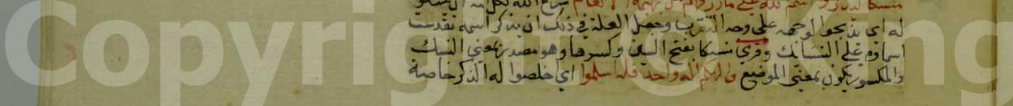 له اي يذبحوا لوجهه على وجه التقرب وجعل العلة في ذلك ان يذكر اسمه تقدست
اسماؤه على النسائك وقري منسكا بفتح السين وكسرها وهو مصدر بمعني النسك
والمكسور يكون بمعني الموضع فالهكم اله واحد فله اسلموا اي اخلصوا له الذكر خاصة
Copyrig
ng